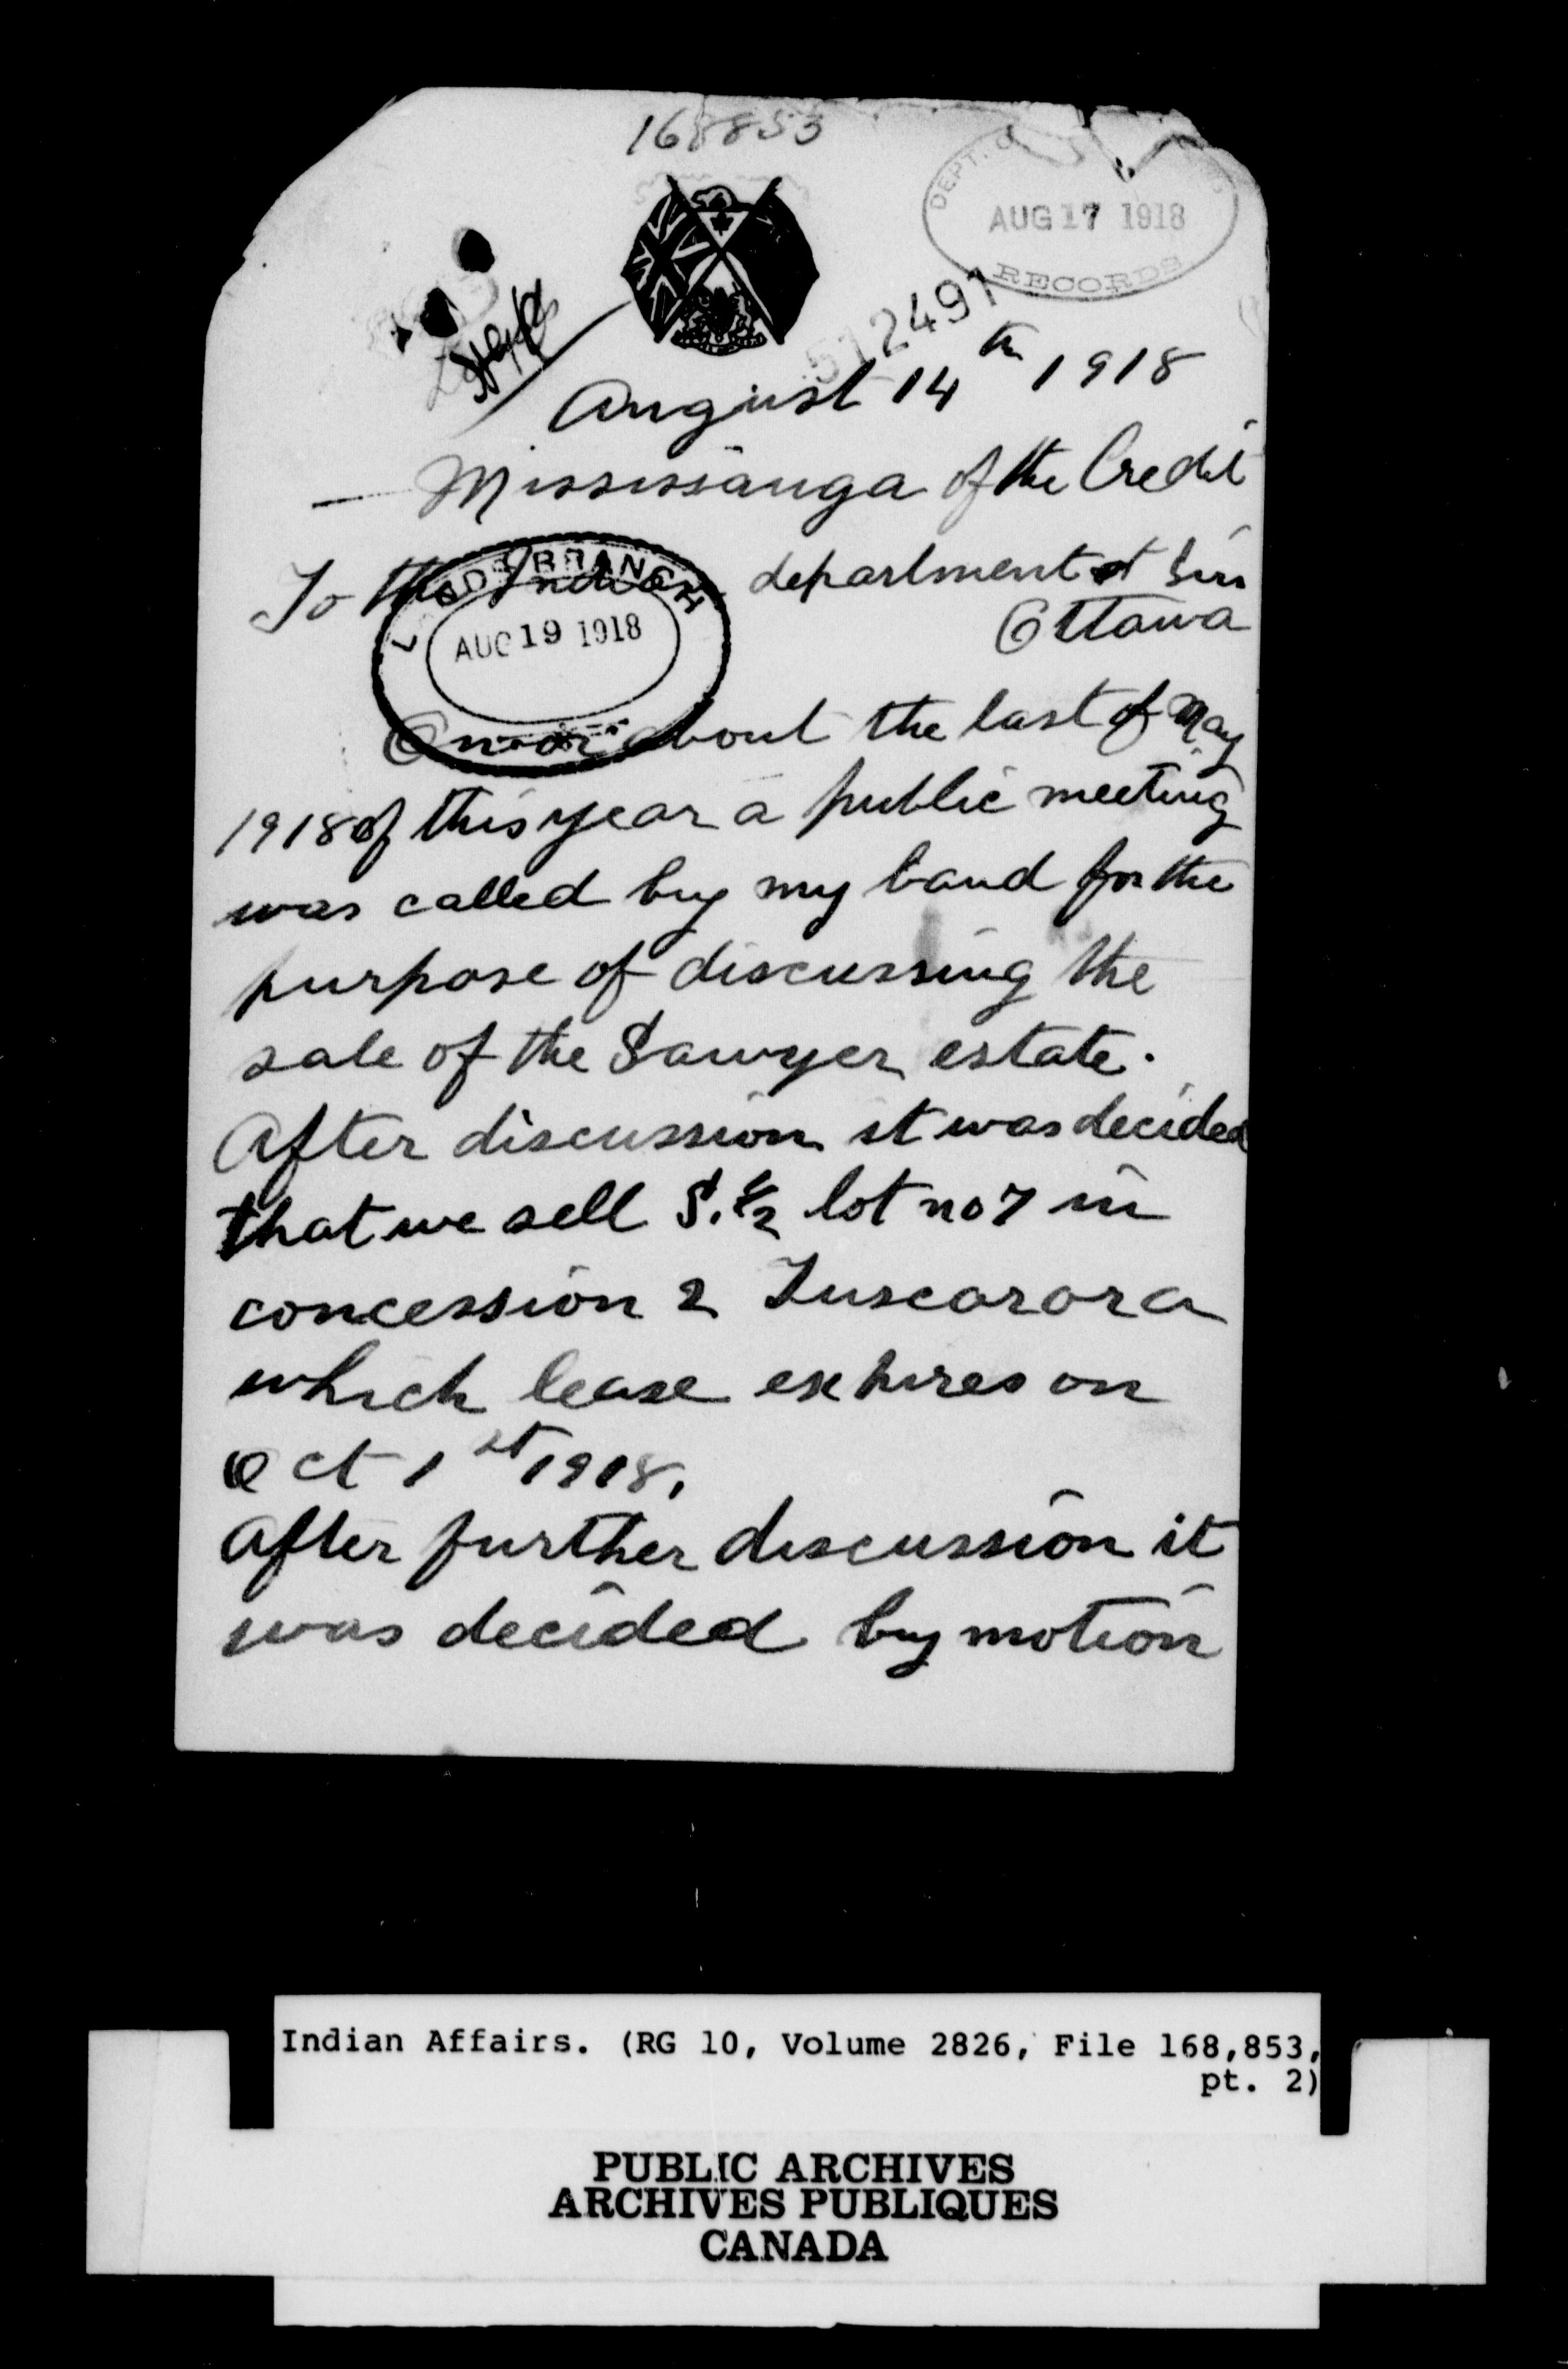 168853
DEPT. O
AUG 17 1918
RECORDS
512491
August 14th 1918
Mississauga of the Credit
To the Indian department at
Ottawa
LANDS BRANCH
AUG 19 1918
On or about the last of May
1918 of this year a public meeting
was called by my band for the
purpose of discussing the
sale of the Sawyer estate.
After discussion it was decided
that we sell S. 1/2 lot no 7 in
concession 2 Tuscarora
which lease expires on
Oct 1st 1918.
After further discussion it
was decided by motion
Indian Affairs. (RG 10, Volume 2826, File 168,853,
pt. 2)
PUBLIC ARCHIVES
ARCHIVES PUBLIQUES
CANADA